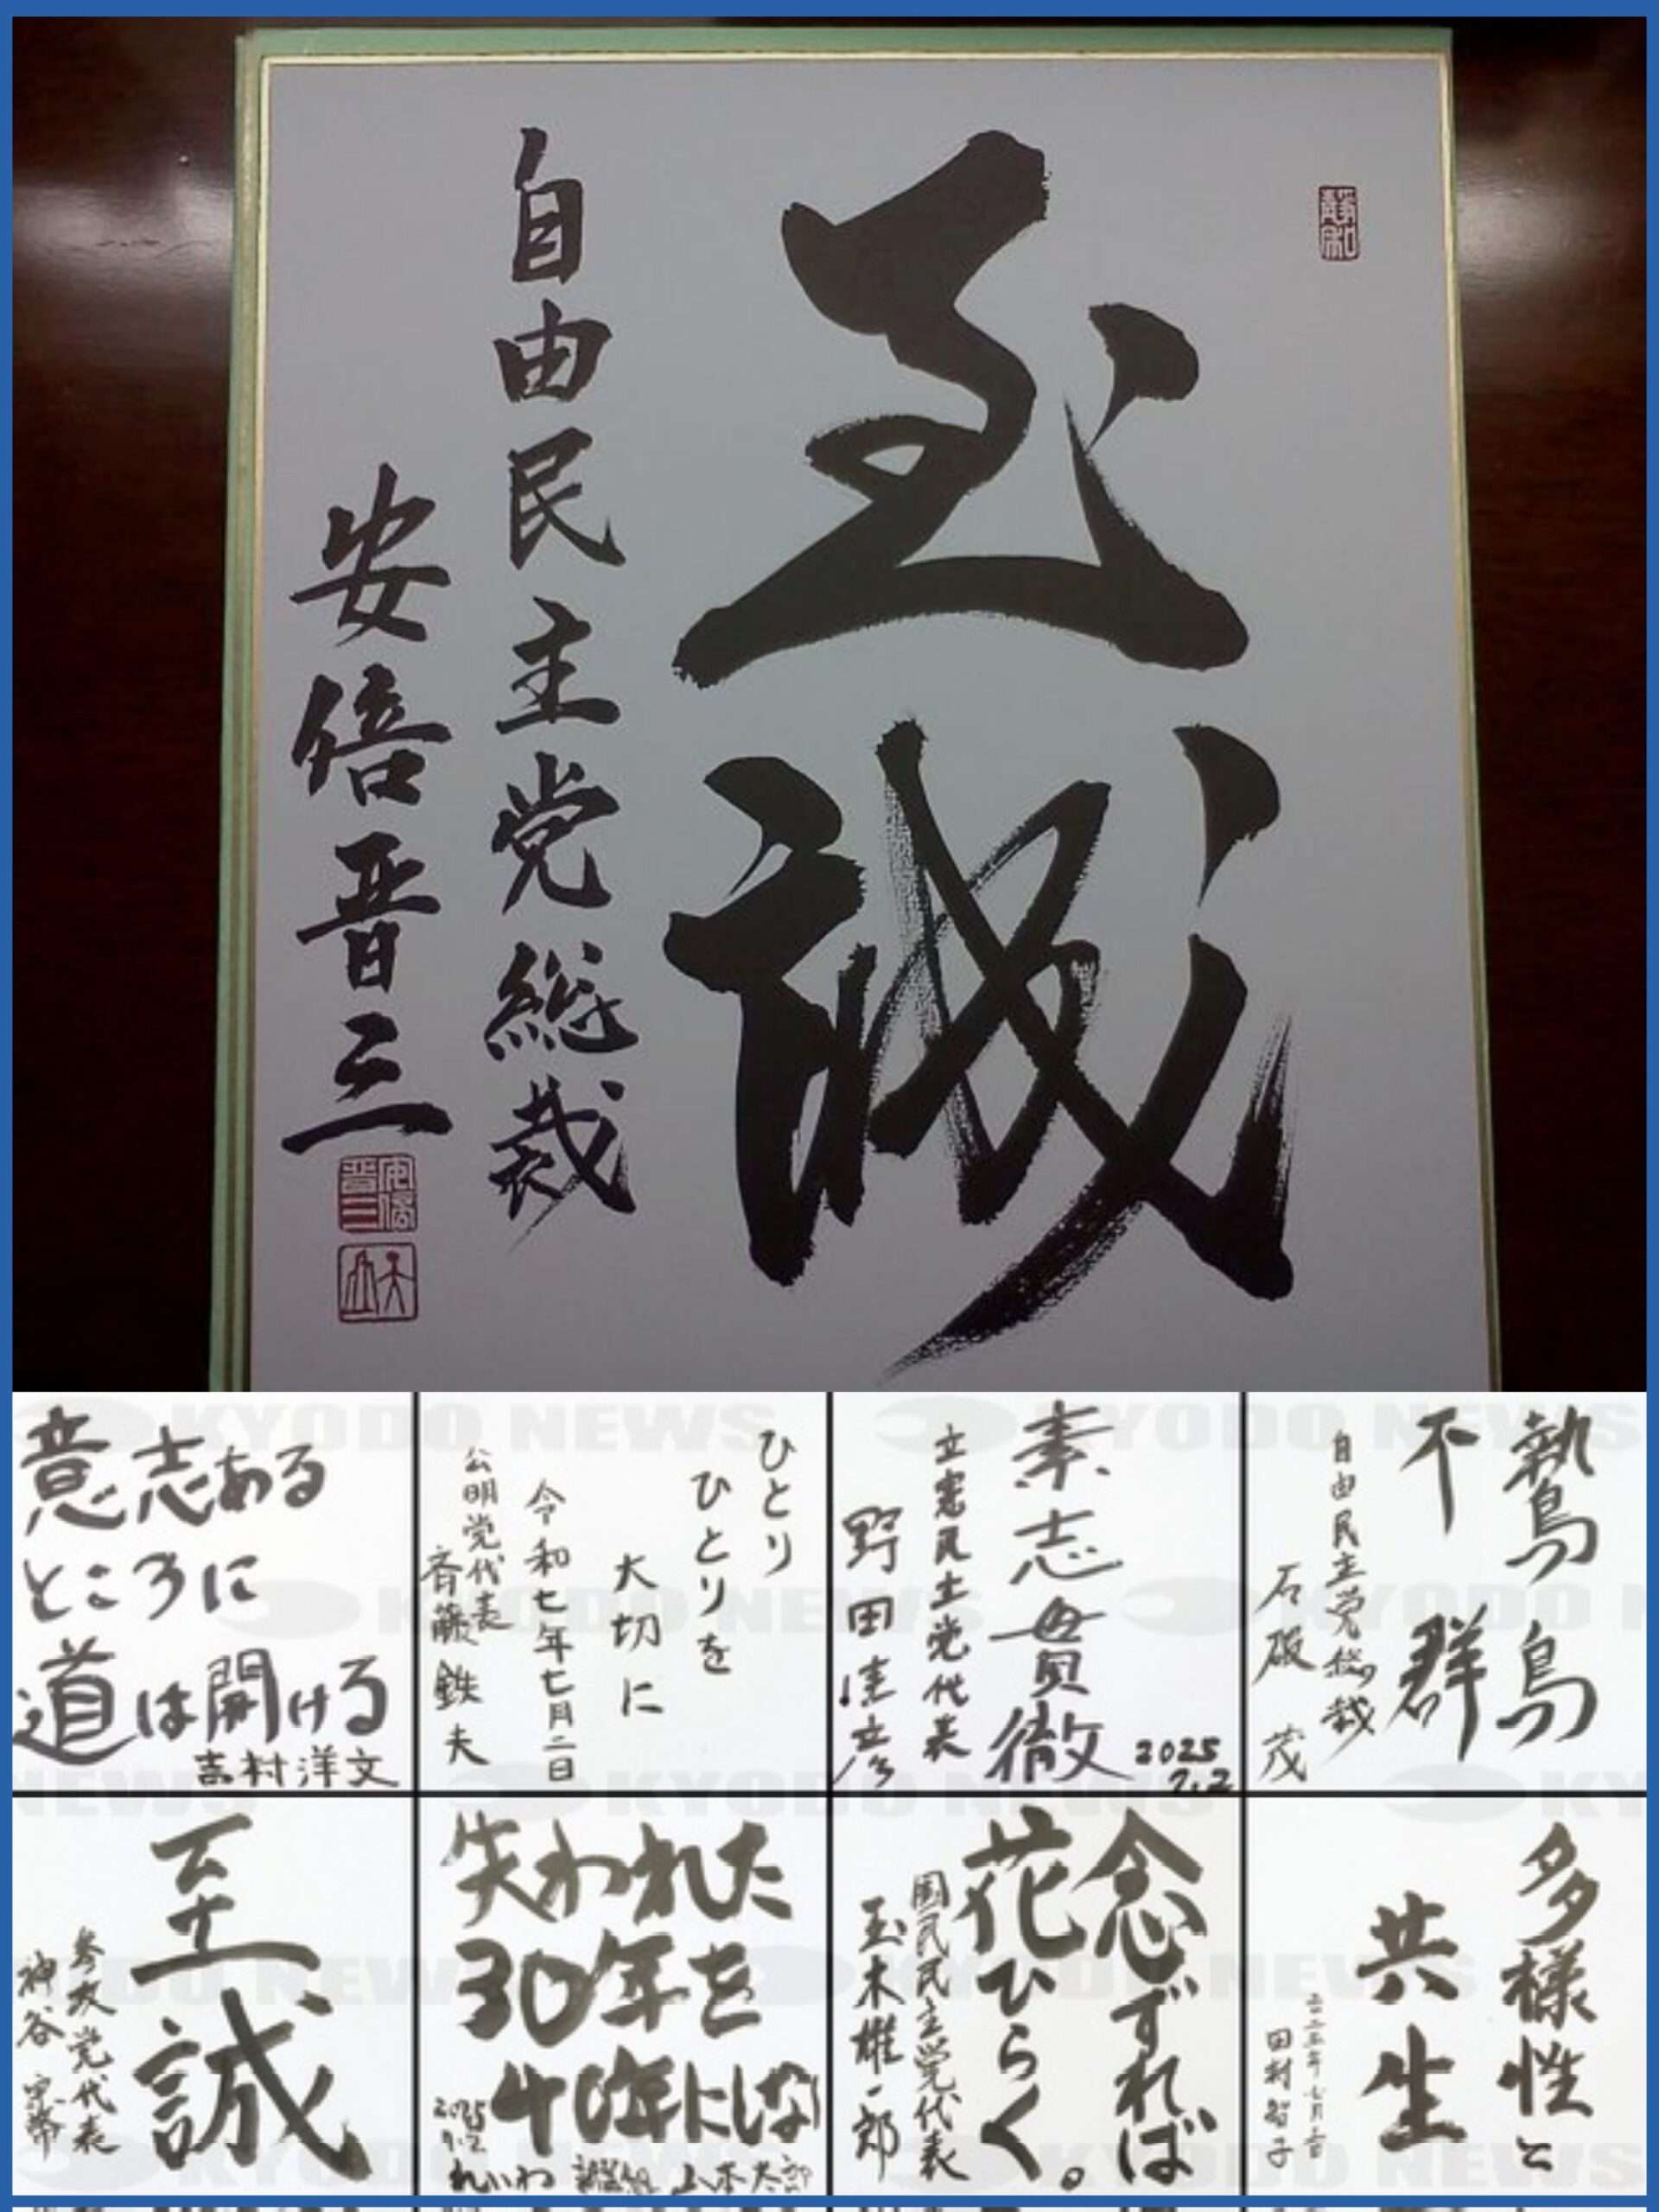 至誠
自由民主党総裁
安倍晋三
鷙鳥
不群
自由民主党総裁
石破 茂
素志貫徹
立憲民主党代表
野田佳彦
2025
7.2
ひとり
ひとりを
大切に
令和七年七月二日
公明党代表
斉藤鉄夫
意志ある
ところに
道は開ける
吉村洋文
多様性と
共生
二〇二五年七月二日
田村智子
念ずれば
花ひらく。
国民民主党代表
玉木雄一郎
失われた
30年を
40年にしない
2025
7.2
れいわ 新選組 山本太郎
至誠
参政党代表
神谷宗幣
KYODO NEWS